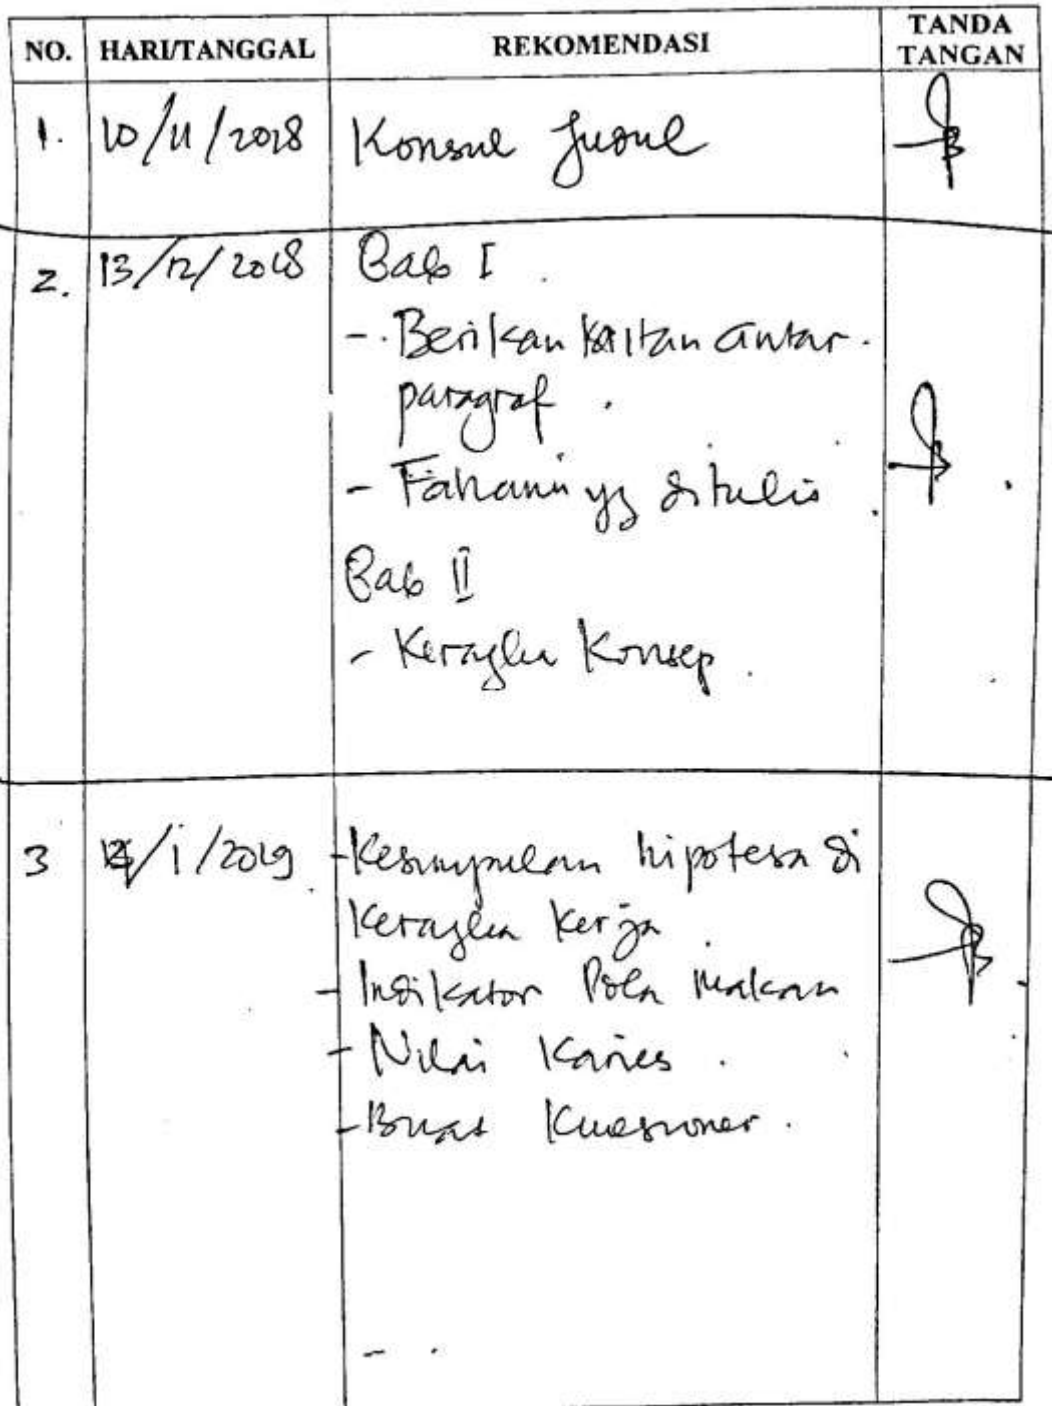 NO. HARI/TANGGAL REKOMENDASI TANDA TANGAN
1. 10/11/2018 Konsul Judul
2. 13/12/2018 Bab I
- Berikan Kaitan antar
paragraf
- Fahami yg ditulis
Bab II
- Kerangka Konsep
3 /1/2019 - Kesimpulan hipotesa di
Kerangka Kerja
- Indikator Pola makan
- Nilai Karies
- Buat Kuesioner